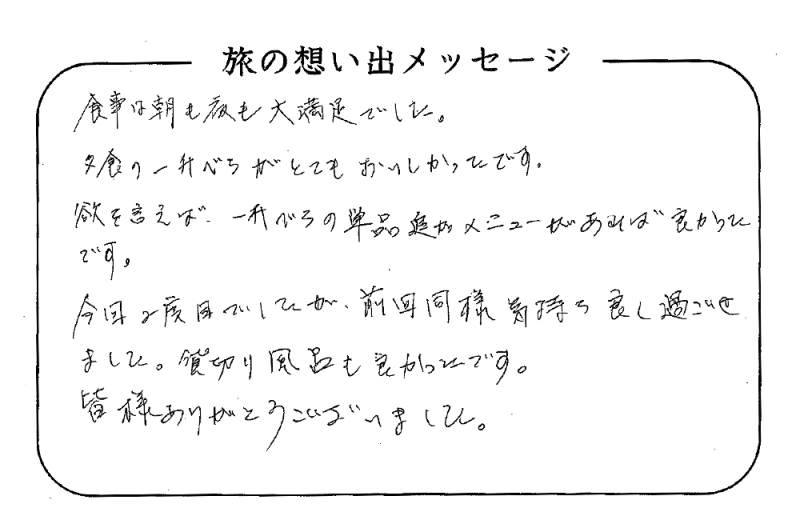 旅の想い出メッセージ
食事は朝も夜も大満足でした。
夕食の一升べらがとてもおいしかったです。
欲を言えば、一升べらの単品追加メニューがあれば良かった
です。
今回2度目でしたが、前回同様気持ち良く過ごせ
ました。貸切り風呂も良かったです。
皆様ありがとうございました。